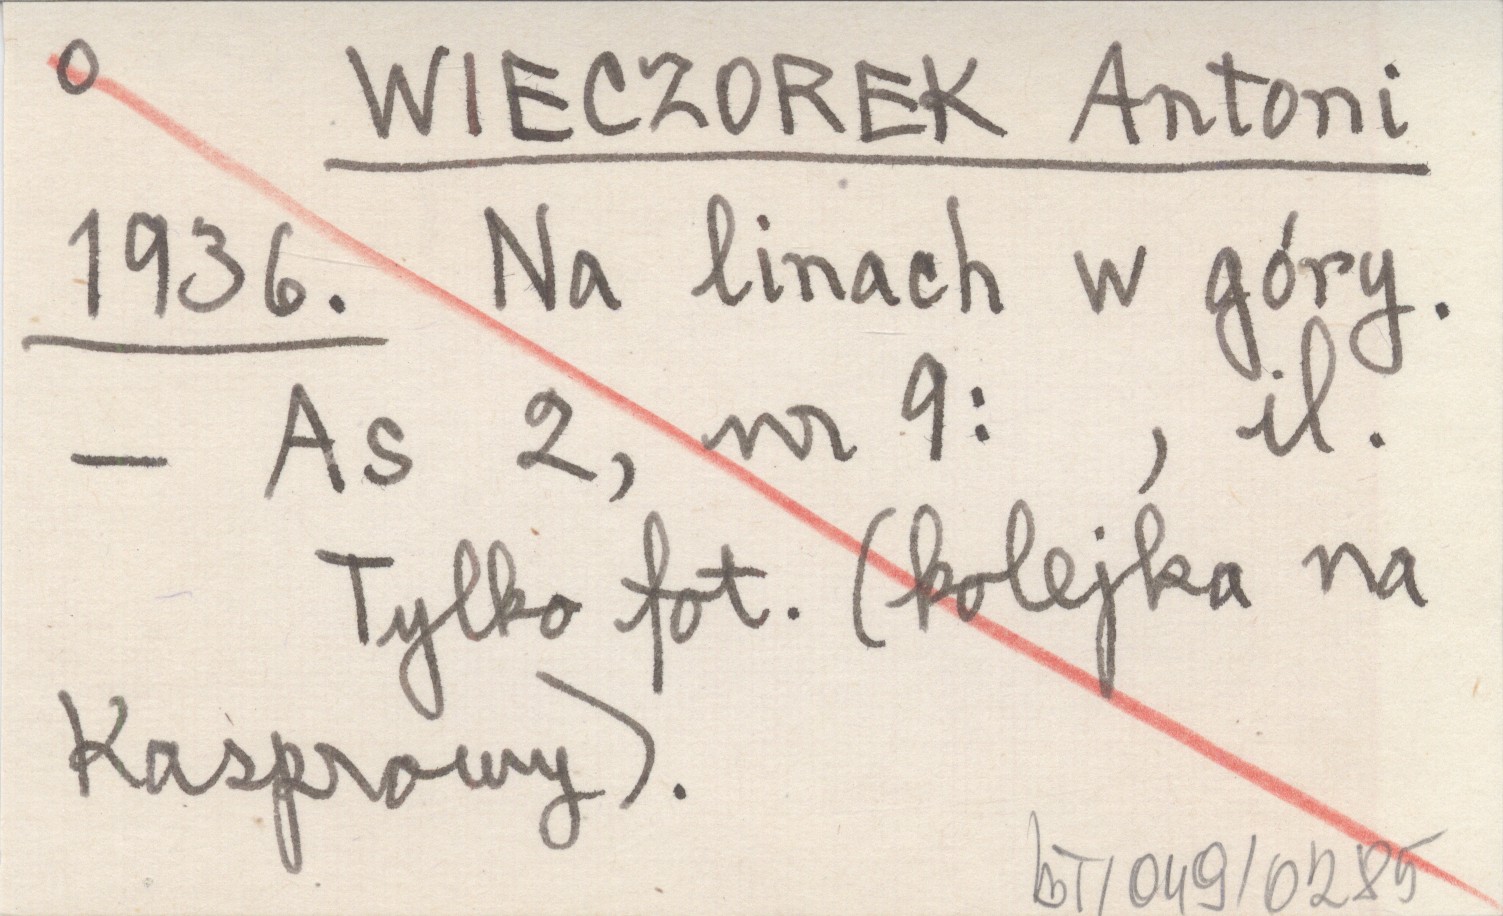 O WIECZOREK Antoni
1936. Na linach w góry.
— As 2, nr 9: , il.
Tylko fot. (kolejka na
Kasprowy).
bT/049/0285